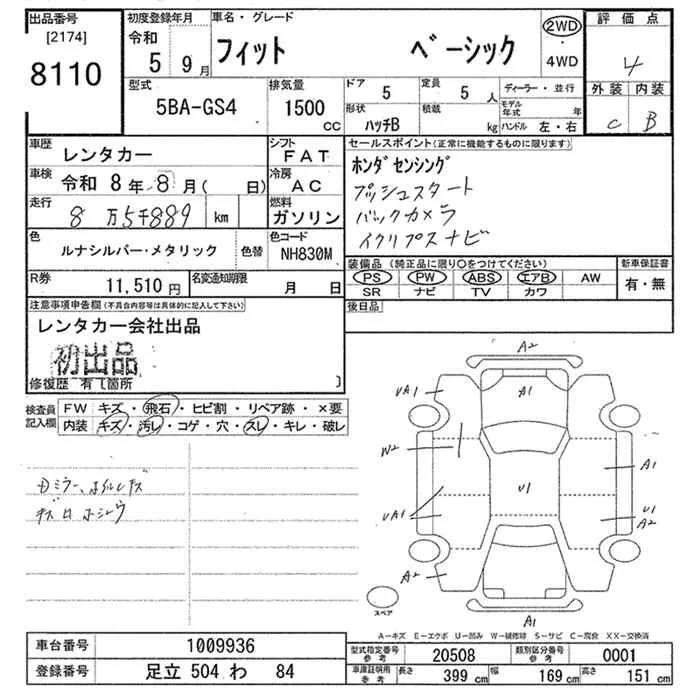 出品番号 初度登録年月 車名・グレード 2WD 評価点
[2174] 令和 フィット ベーシック ・
8110 5 9月 4WD 4
型式 排気量 ドア 定員 ディーラー・並行 外装 内装
5BA-GS4 1500 CC 5 5人 モデル年式 年 C B
形状 積載
ハッチB kg ハンドル 左・右
車歴 レンタカー シフト FAT セールスポイント(正常に機能するものに限ります)
車検 令和 8年 8月( 日) 冷房 AC ホンダセンシング
プッシュスタート
走行 8万5千889 km 燃料 ガソリン バックカメラ
イクリプスナビ
色 ルナシルバー・メタリック 色替 色コード NH830M
装備品(純正品に限り〇をつけてください) 新車保証書
R券 11,510円 名変通知期限 月 日 PS PW ABS エアB AW 有・無
SR ナビ TV カワ
注意事項申告欄(不具合内容等は具体的に記入して下さい) 後日品
レンタカー会社出品
初出品
修復歴 有〔箇所 〕
検査員 FW キズ・飛石・ヒビ割・リペア跡・×要
記入欄 内装 キズ・汚レ・コゲ・穴・スレ・キレ・破レ
A2
UA1 A1
W2
A1
U1
UA1 U1
A2
A2
A1
スペア
A−キズ E−エクボ U−凹み W−補修跡 S−サビ C−腐食 XX−交換済
車台番号 1009936 型式指定番号 参考 20508 類別区分番号 参考 0001
登録番号 足立 504 わ 84 車庫証明用 参考 長さ 399 cm 幅 169 cm 高さ 151 cm